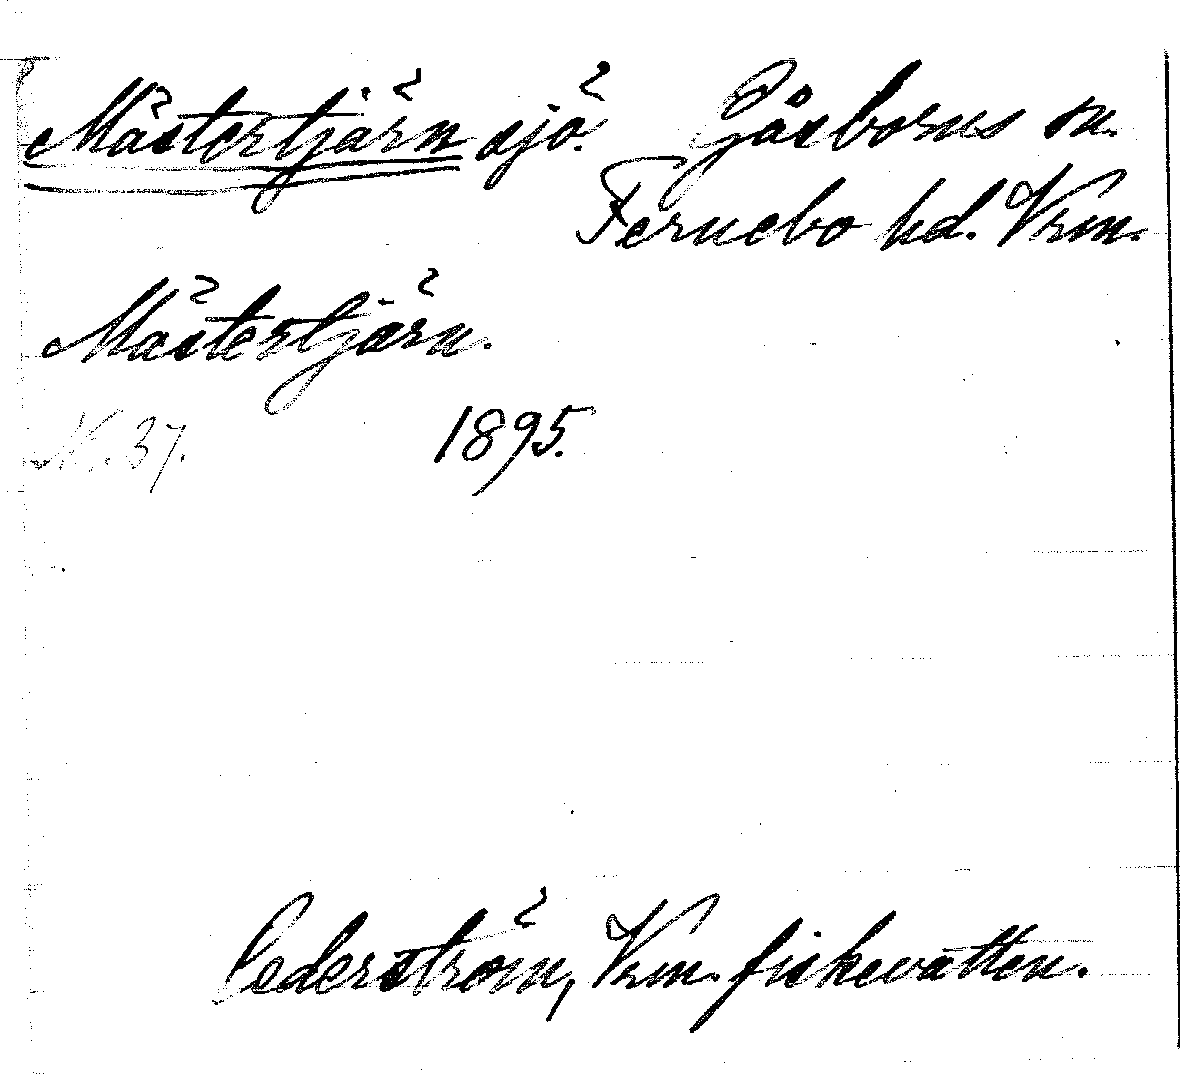 Mästertjärn sjö. Gåsborns sn.
Fernebo hd. Vrm.
Mästertjärn.
N. 37. 1895.
Cederström, Vrm. fiskevatten.